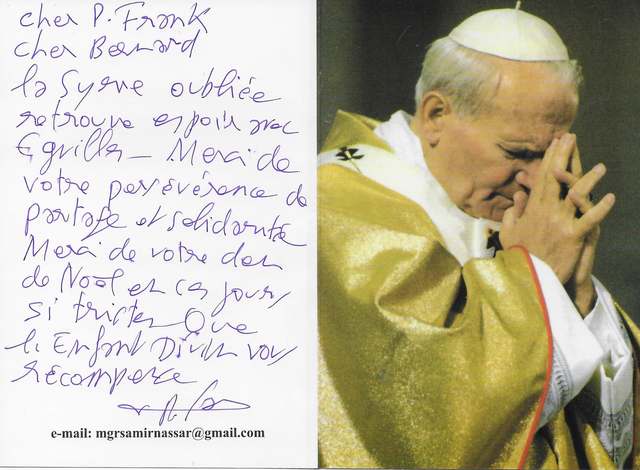 cher P. Frank
cher Bernard
la Syrie oubliée
retrouve espoir avec
Eguilles - Merci de
votre persévérance de
partage et solidarité
Merci de votre don
de Noël en ces jours
si tristes Que
l'Enfant Divin vous
récompense
e-mail: mgrsamirnassar@gmail.com